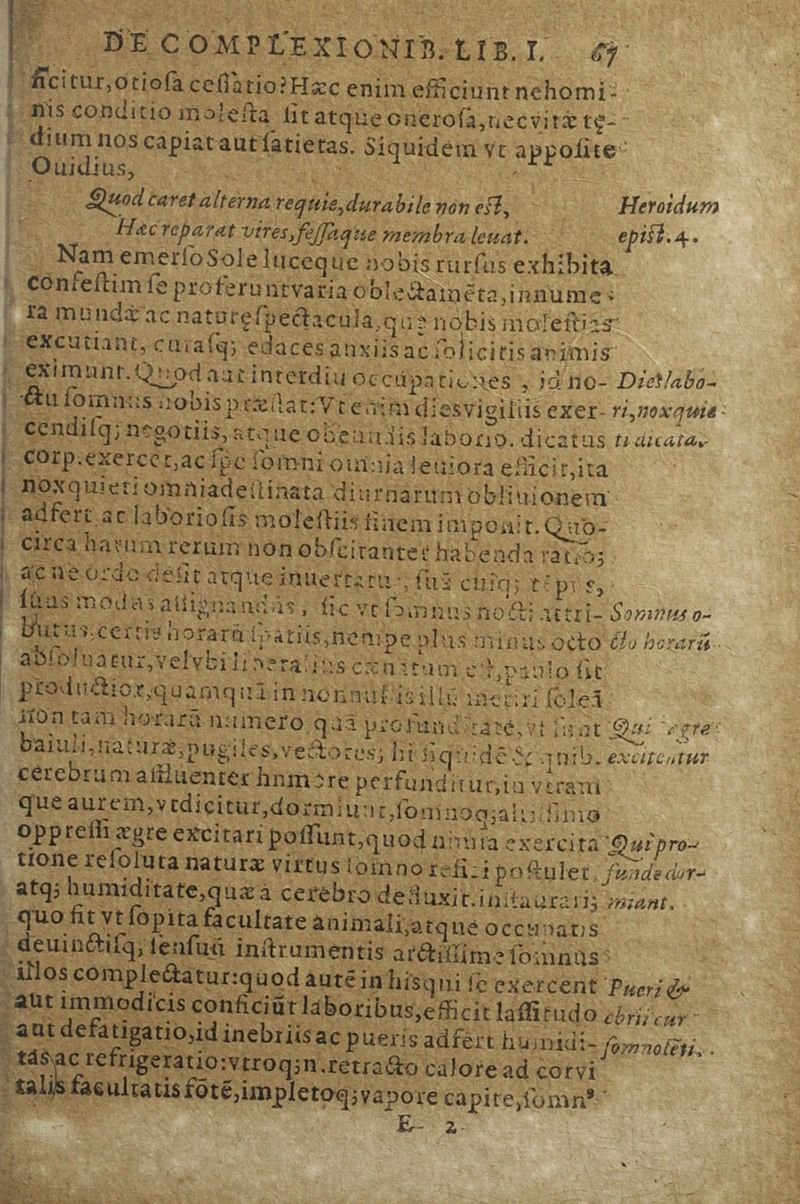 DE COMPLEXIONIB. LIB. I. 67
ficitur,otiosa cessatio?Hæc enim efficiunt ne homi-
nis conditio molesta sit atque onerosa,nec vitæ tę-
dium nos capiat aut satietas. Siquidem vt apposite
Ouidius,
Quod caret alterna requie,durabile non est, Heroidum
Hæc reparat vires,fessaque membra leuat. epist.4.
Nam emerso Sole luceque nobis rursus exhibita
confestim se proferunt varia oblectamēta,innume-
ra mundæ ac naturę spectacula,quæ nobis molestias
excutiant, curasq; edaces anxiis ac solicitis animis
eximunt. Quod aut interdiu occupationes , id no- Diei labo-
ctu somnus nobis præstat:Vt enim dies vigiliis exer- ri,nox quie-
cendisq; negotiis, atque obeundis labori dicatus ti dicata.
corp.exercet,ac spe somni omnia leuiora efficit,ita
nox quieti omnia destinata diurnarum obliuionem
adfert ac laboriosis molestiis finem imponit. Quo-
circa harum rerum non obscitanter habenda ratio;
ac ne ordo desit atque inuertatur, sua cuiq; tēpī s,
suas modas assignandas, sic vt somnus nocti attri- Somnus o-
butus,certis horarū spatiis,nempe plus minus octo cto horarū
absoluatur,vel vbi liberalius cænatum est,paulo sit
productior,quamquā in nonnullis illū metiri soleā
non tam horarū numero quā profunditate,vt sunt Qui ægre
baiuli,nauta,pugiles,vectores; hi siquidē & quib. excitentur
cerebrum affluenter humore perfunditur,in vtram-
que aurem,vt dicitur,dormiunt,somnoq;altissimo
oppressi ægre excitari possunt,quod nimia exercita- Qui pro-
tione resoluta naturæ virtus somno refici postulet, funde dor-
atq; humiditate,quæ à cerebro defluxit.instaurari; miant.
quo fit vt sopita facultate animali,atque occupatis
deuinctisq; sensuū instrumentis arctissime somnus
illos complectatur:quod autē in his qui se exercent Pueri &
aut immodicis conficiūt laboribus,efficit lassitudo ebrii cur
aut defatigatio,id inebriis ac pueris adfert humidi- somnolēti.
tas,ac refrigeratio:vtroq;n.retracto calore ad corvi
talis facultatis fōtē,impletoq;vapore capite,somnꝰ
E 2